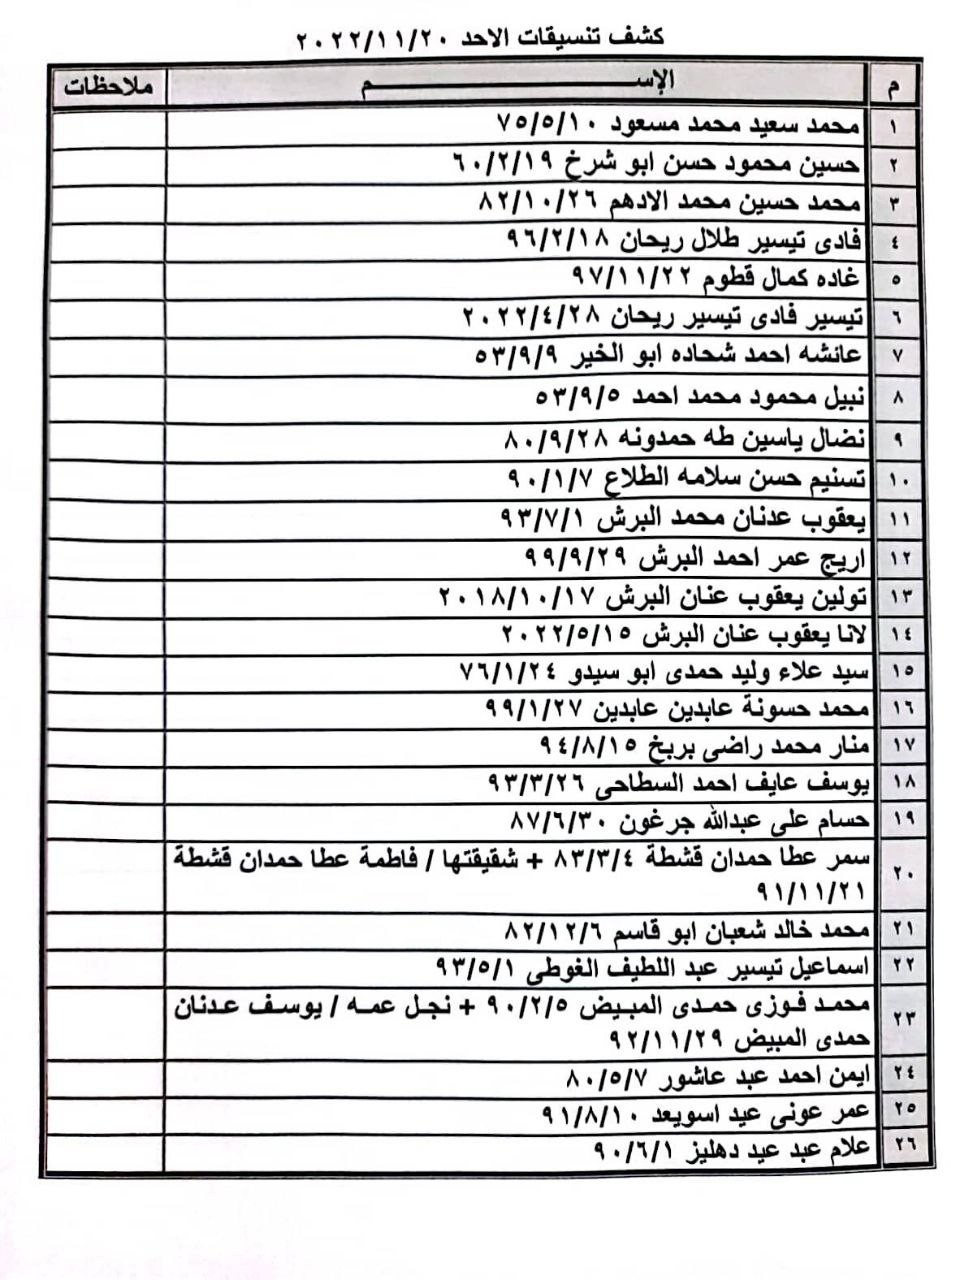 كشف تنسيقات الاحد ٢٠٢٢/١١/٢٠
م الإســـــــــم ملاحظات
١ محمد سعيد محمد مسعود ٧٥/٥/١٠
٢ حسين محمود حسن ابو شرخ ٦٠/٢/١٩
٣ محمد حسين محمد الادهم ٨٢/١٠/٢٦
٤ فادى تيسير طلال ريحان ٩٦/٢/١٨
٥ غاده كمال قطوم ٩٧/١١/٢٢
٦ تيسير فادى تيسير ريحان ٢٠٢٢/٤/٢٨
٧ عائشه احمد شحاده ابو الخير ٥٣/٩/٩
٨ نبيل محمود محمد احمد ٥٣/٩/٥
٩ نضال ياسين طه حمدونه ٨٠/٩/٢٨
١٠ تسنيم حسن سلامه الطلاع ٩٠/١/٧
١١ يعقوب عدنان محمد البرش ٩٣/٧/١
١٢ اريج عمر احمد البرش ٩٩/٩/٢٩
١٣ تولين يعقوب عنان البرش ٢٠١٨/١٠/١٧
١٤ لانا يعقوب عنان البرش ٢٠٢٢/٥/١٥
١٥ سيد علاء وليد حمدى ابو سيدو ٧٦/١/٢٤
١٦ محمد حسونة عابدين عابدين ٩٩/١/٢٧
١٧ منار محمد راضى بربخ ٩٤/٨/١٥
١٨ يوسف عايف احمد السطاحى ٩٣/٣/٢٦
١٩ حسام على عبدالله جرغون ٨٧/٦/٣٠
٢٠ سمر عطا حمدان قشطة ٨٣/٣/٤ + شقيقتها / فاطمة عطا حمدان قشطة
٩١/١١/٢١
٢١ محمد خالد شعبان ابو قاسم ٨٢/١٢/٦
٢٢ اسماعيل تيسير عبد اللطيف الغوطى ٩٣/٥/١
٢٣ محمد فوزى حمدى المبيض ٩٠/٢/٥ + نجل عمه / يوسف عدنان
حمدى المبيض ٩٢/١١/٢٩
٢٤ ايمن احمد عبد عاشور ٨٠/٥/٧
٢٥ عمر عونى عيد اسويعد ٩١/٨/١٠
٢٦ علام عبد عيد دهليز ٩٠/٦/١